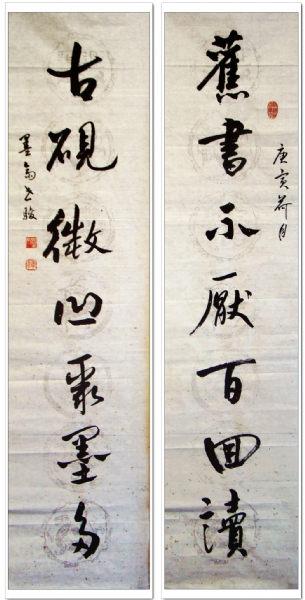 庚寅荷月
舊書不厭百回讀
古硯微凹聚墨多